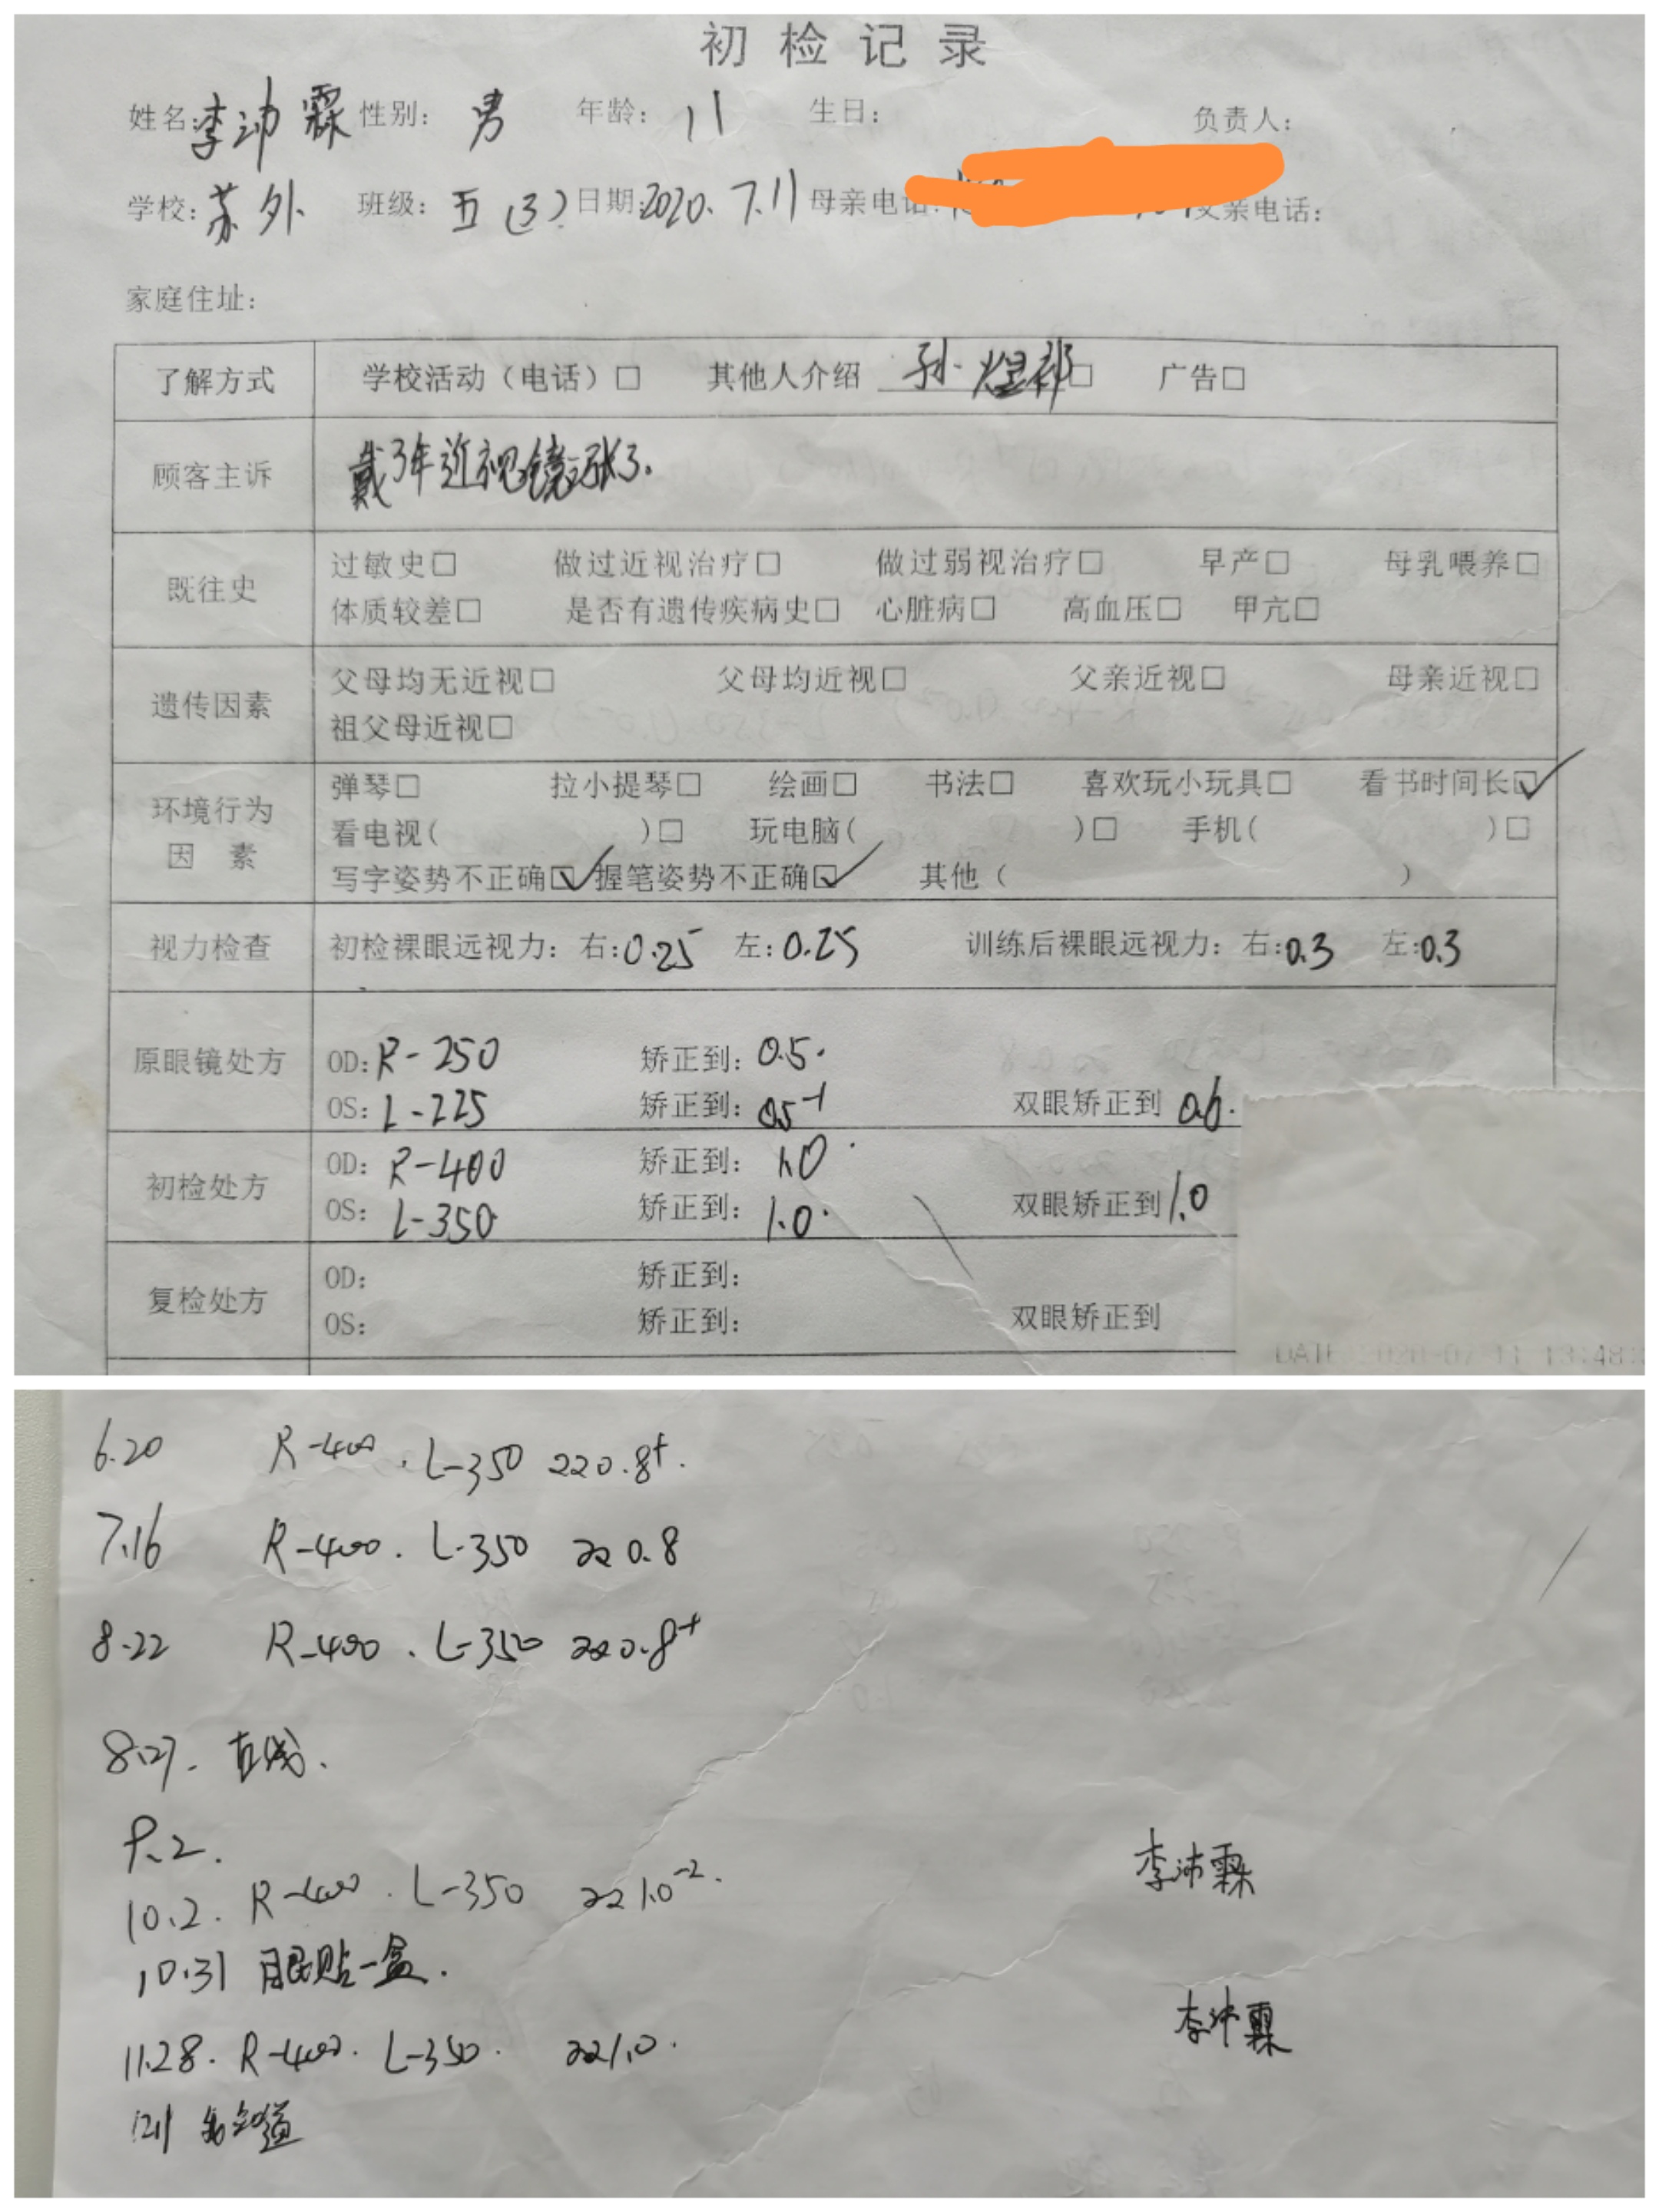 初检记录
姓名:李沛霖 性别: 男 年龄: 11 生日: 负责人:
学校:苏外 班级: 五(3) 日期:2020.7.11 母亲电话: 父亲电话:
家庭住址:
了解方式 学校活动（电话）□ 其他人介绍 孙 □ 广告□
顾客主诉 戴3年近视镜涨了.
既往史 过敏史□ 做过近视治疗□ 做过弱视治疗□ 早产□ 母乳喂养□
体质较差□ 是否有遗传疾病史□ 心脏病□ 高血压□ 甲亢□
遗传因素 父母均无近视□ 父母均近视□ 父亲近视□ 母亲近视□
祖父母近视□
环境行为因素 弹琴□ 拉小提琴□ 绘画□ 书法□ 喜欢玩小玩具□ 看书时间长☑
看电视( )□ 玩电脑( )□ 手机( )□
写字姿势不正确☑ 握笔姿势不正确☑ 其他( )
视力检查 初检裸眼远视力: 右:0.25 左:0.25 训练后裸眼远视力: 右:0.3 左:0.3
原眼镜处方 OD: R-250 矫正到: 0.5.
OS: L-225 矫正到: 0.5⁻¹ 双眼矫正到 0.6.
初检处方 OD: R-400 矫正到: 1.0
OS: L-350 矫正到: 1.0. 双眼矫正到 1.0
复检处方 OD: 矫正到:
OS: 矫正到: 双眼矫正到
DATE 2020-07-11 13:48
6.20 R-400 . L-350 0.8⁺.
7.16 R-400 . L-350 0.8
8.22 R-400 . L-350 0.8⁺
8.27. 在线.
9.2.
10.2. R-400 . L-350 1.0⁻². 李沛霖
10.31 眼贴一盒.
11.28. R-400. L-350. 1.0. 李沛霖
12.1 知道